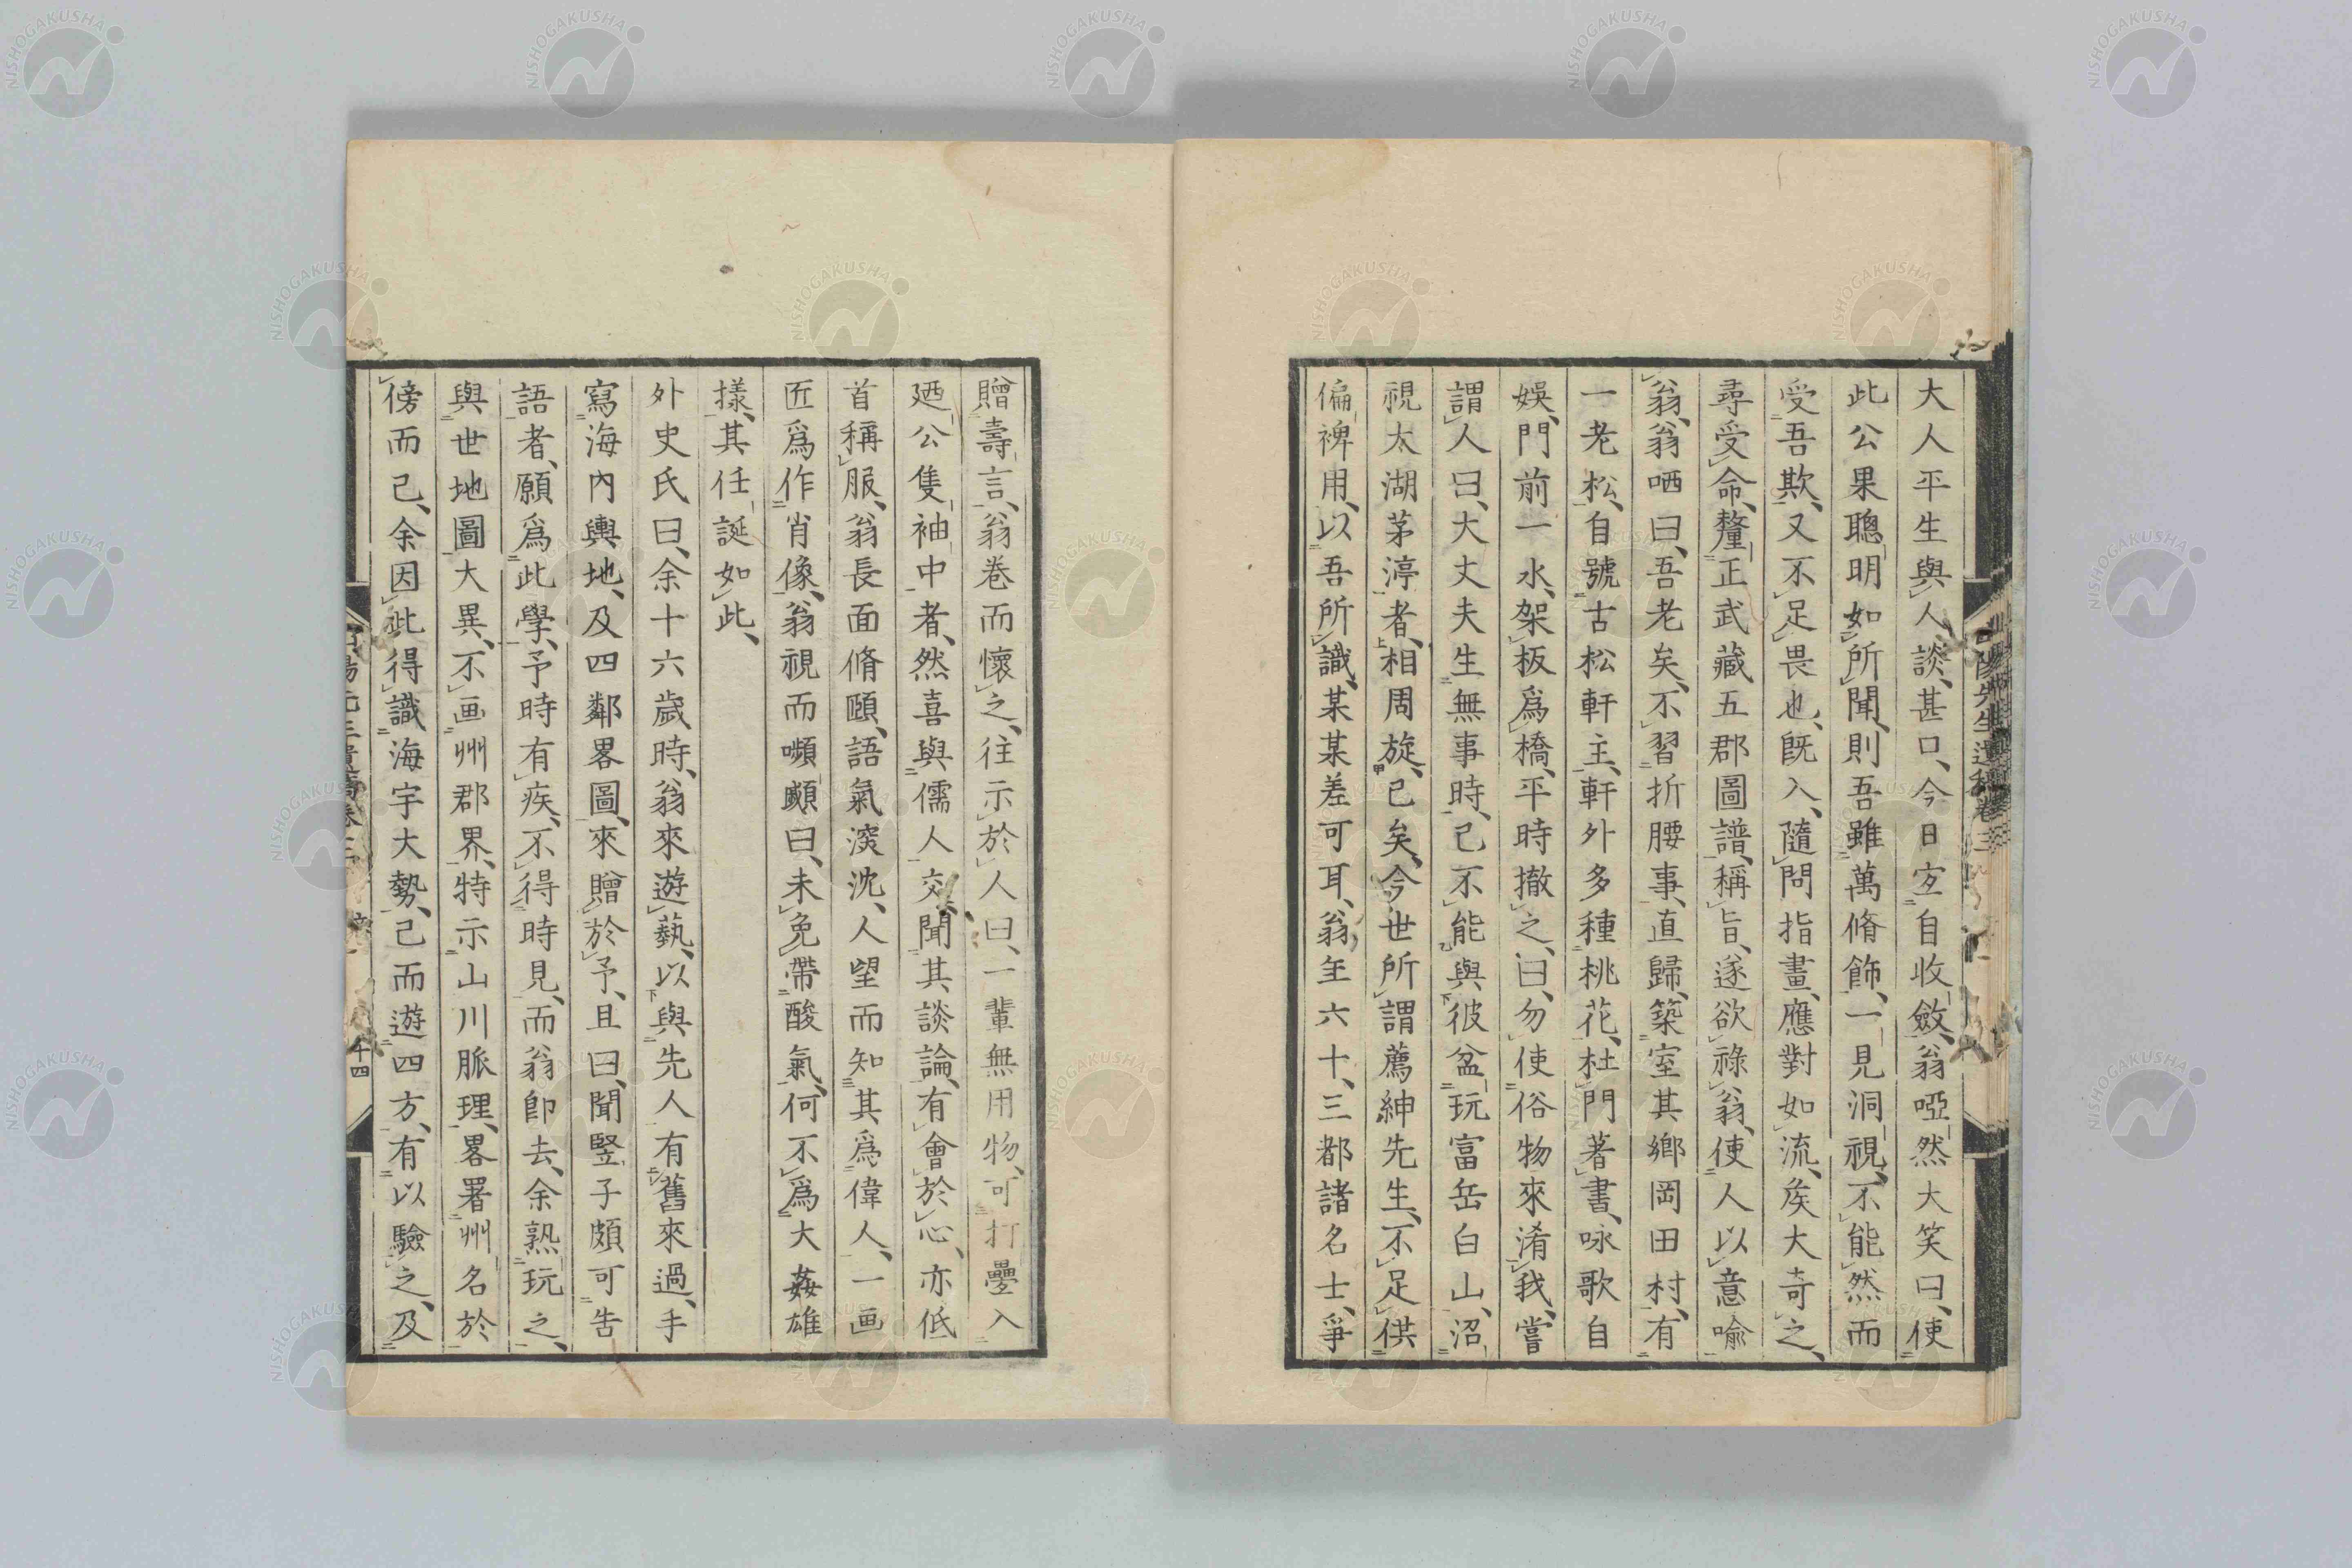 大人平生與人談、甚口、今日宜自收斂、翁啞然大笑曰、使
此公果聰明如所聞、則吾雖萬脩飾、一見洞視、不能然而
受吾欺、又不足畏也、既入、隨問指畫、應對如流、矦大奇之、
尋受命、釐正武藏五郡圖譜、稱旨、遂欲祿翁、使人以意喻
翁、翁哂曰、吾老矣、不習折腰事、直歸、築室其鄉岡田村、有
一老松、自號古松軒主、軒外多種桃花、杜門著書、咏歌自
娛、門前一水、架板爲橋、平時撤之、曰、勿使俗物來淆我、嘗
謂人曰、大丈夫生無事時、已不能與彼盆玩富岳白山、沼
視太湖茅渟者、相周旋、已矣、今世所謂薦紳先生、不足供
偏裨用、以吾所識、某某差可耳、翁年六十、三都諸名士、爭
贈壽言、翁卷而懷之、往示於人曰、一輩無用物、可打疊入
廼公隻袖中者、然喜與儒人交、聞其談論、有會於心、亦低
首稱服、翁長面脩頤、語氣深沈、人望而知其爲偉人、一画
匠爲作肖像、翁視而嚬顣曰、未免帶酸氣、何不爲大姦雄
樣、其任誕如此、
外史氏曰、余十六歲時、翁來遊藝、以與先人有舊來過、手
寫海內輿地、及四鄰畧圖、來贈於予、且曰、聞豎子頗可告
語者、願爲此學、予時有疾、不得時見、而翁卽去、余熟玩之、
與世地圖大異、不画州郡界、特示山川脈理、畧署州名於
傍而已、余因此得識海宇大勢、已而遊四方、有以驗之、及
十四
NISHOGAKUSHA